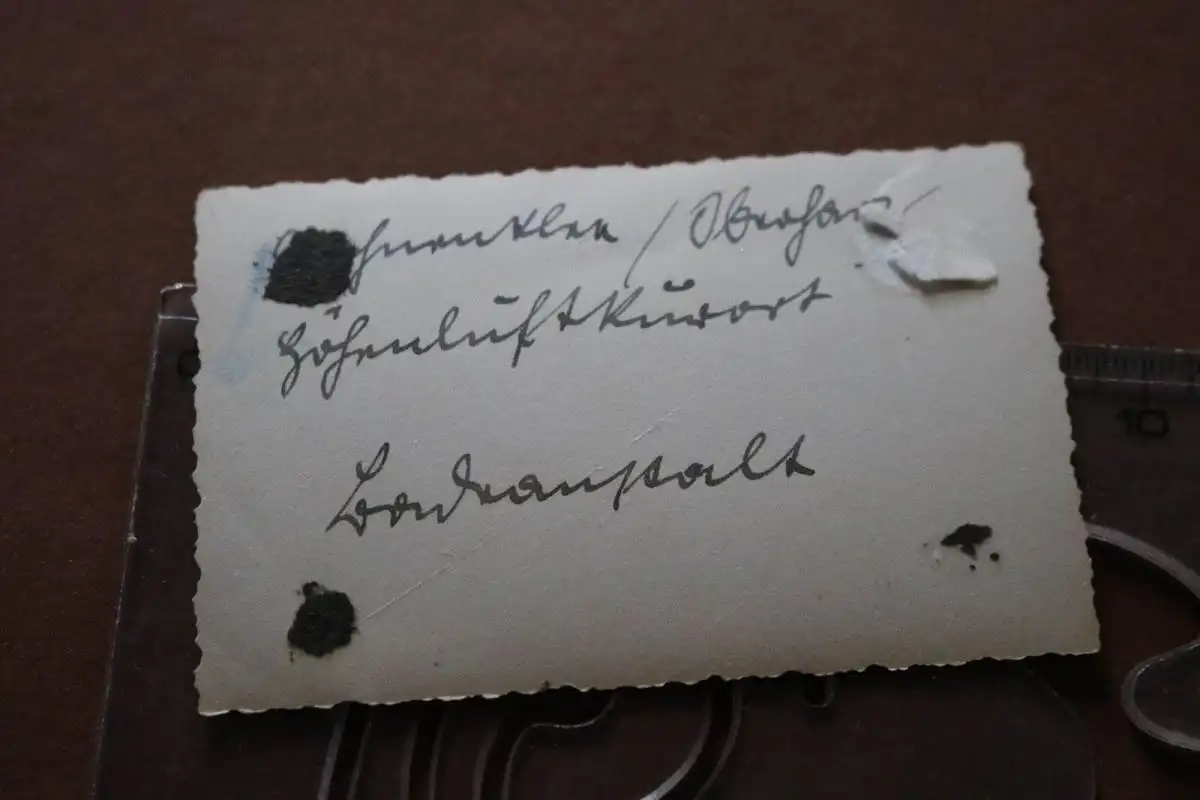 Hahnenklee / Oberharz
Höhenluftkurort
Badeanstalt
10